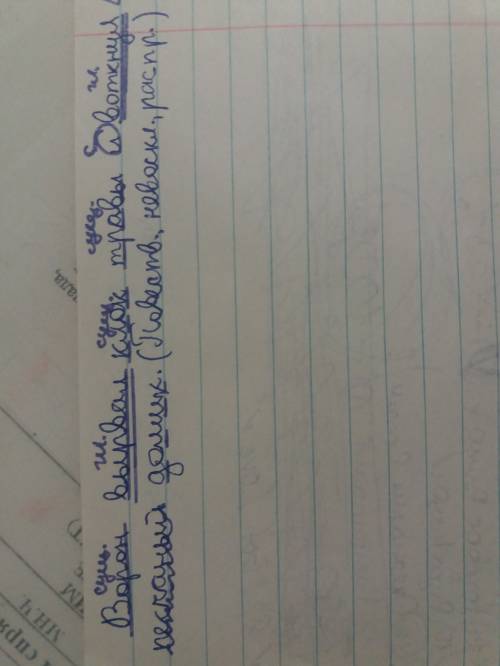 сущ. гл. сущ. сущ. с. гл.
Ворон вырвал клок травы и воткнул
песчаный домик. (Повеств., невоскл., распр.)
МН.Ч.
спря